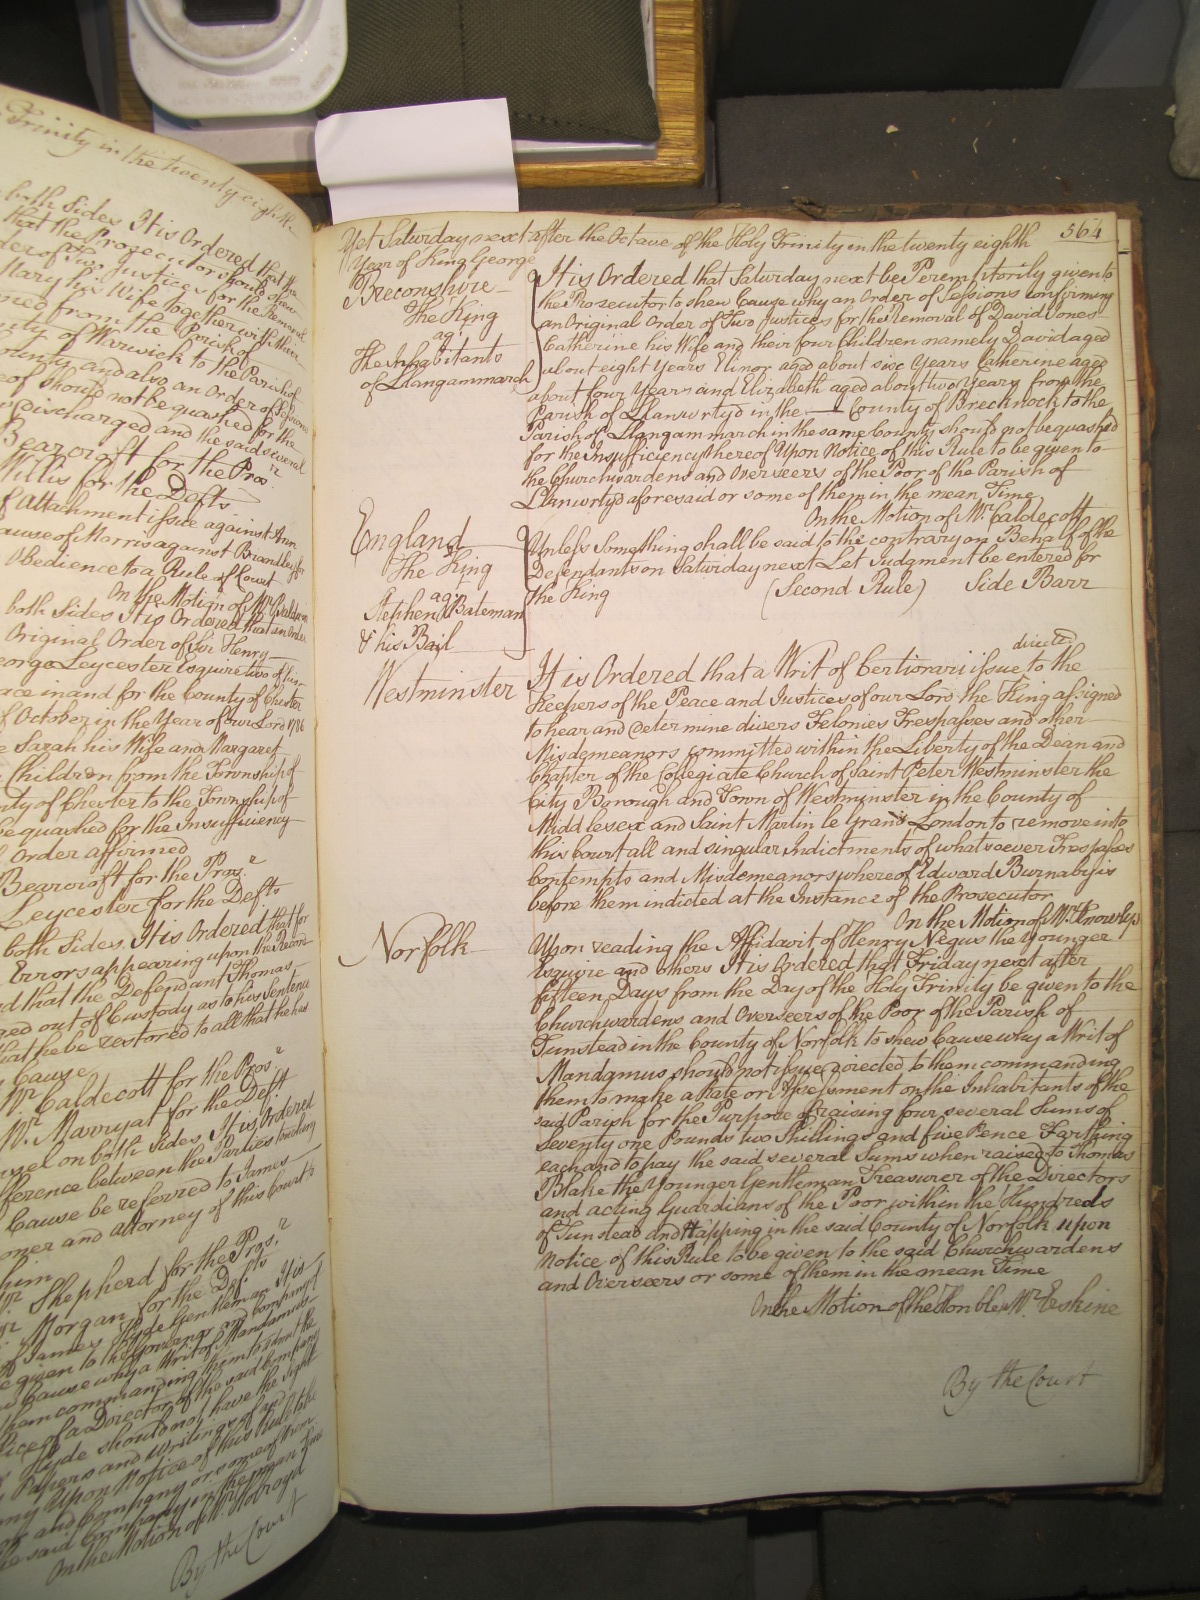 Trinity in the twenty eighth
both Sides It is Ordered that the
that the Prosecutor should shew
der of Two Justices for the Removal
Mary his Wife together with their
from the Parish of
of Warwick to the Parish of
County and also an Order of Sessions
eof should not be quashed for the
discharged and the said several
Bearcroft for the Prosr
Willis for the Defts
f attachment issue against Ann
Cause of Morris against Brandley for
Obedience to a Rule of Court
On the Motion of Mr Baldwin
both Sides It is Ordered that an Order
Original Order of Sir Henry
George Leycester Esquire two of his
ace in and for the County of Chester
f October in the Year of our Lord 1786
e Sarah his Wife and Margaret
Children from the Township of
nty of Chester to the Township of
be quashed for the Insufficiency
l Order affirmed
Bearcroft for the Prosr
Leycester for the Defts
both Sides It is Ordered that for
Errors appearing upon the Record
d that the Defendant Thomas
ged out of Custody as to his Sentence
that he be restored to all that he has
Cause
Mr Caldecott for the Prosr
Mr Marryat for the Deft
nsel on both Sides It is Ordered
fference between the Parties touching
Cause be referred to James
oner and attorney of this Court
him
Mr Shepherd for the Prosr
Mr Morgan for the Defts
of James Hyde Gentleman It is
e given to the Governor and Company
w Cause why a Writ of Mandamus
them commanding them to admit the
ffice of a Director of the said Company
Hyde should not have the sight
Papers and writings of and
any Upon Notice of this Rule to be
or and Company or some of them
the said Company in the mean Time
On the Motion of Mr
By the Court
Yet Saturday next after the Octave of the Holy Trinity in the twenty eighth 364
Year of King George
Breconshire
The King
agt
The Inhabitants
of Llangammarch
It is Ordered that Saturday next be Peremptorily given to
the Prosecutor to shew Cause why an Order of Sessions confirming
an Original Order of Two Justices for the Removal of David Jones
Catherine his Wife and their four Children namely David aged
about eight Years Elinor aged about six Years Catherine aged
about four Years and Elizabeth aged about two Years from the
Parish of Llanwrtyd in the — County of Brecknock to the
Parish of Llangammarch in the same County should not be quashed
for the Insufficiency thereof Upon Notice of this Rule to be given to
the Churchwardens and Overseers of the Poor of the Parish of
Llanwrtyd aforesaid or some of them in the mean Time
On the Motion of Mr Caldecott
England
The King
agt
Stephen Bateman
& his Bail
Unless Something shall be said to the contrary on Behalf of the
Defendants on Saturday next Let Judgment be entered for
the King (Second Rule) Side Barr
Westminster
It is Ordered that a Writ of Certiorari issue directed to the
Keepers of the Peace and Justices of our Lord the King assigned
to hear and determine divers Felonies Trespasses and other
Misdemeanors committed within the Liberty of the Dean and
Chapter of the Collegiate Church of Saint Peter Westminster the
City Borough and Town of Westminster in the County of
Middlesex and Saint Martin le Grand London to remove into
this Court all and singular indictments of whatsoever Trespasses
Contempts and Misdemeanors whereof Edward Burnaby is
before them indicted at the Instance of the Prosecutor
On the Motion of Mr Knowlys
Norfolk
Upon reading the Affidavit of Henry Negus the younger
Esquire and others It is Ordered that Friday next after
fifteen Days from the Day of the Holy Trinity be given to the
Churchwardens and Overseers of the Poor of the Parish of
Tunstead in the County of Norfolk to shew Cause why a Writ of
Mandamus should not issue directed to them commanding
them to make a Rate or Assessment on the Inhabitants of the
said Parish for the Purpose of raising four several Sums of
Seventy one Pounds two Shillings and five Pence Farthing
each and to pay the said several Sums when raised to Thomas
Blake the Younger Gentleman Treasurer of the Directors
and acting Guardians of the Poor within the Hundreds
of Tunstead and Happing in the said County of Norfolk upon
Notice of this Rule to be given to the said Churchwardens
and Overseers or some of them in the mean Time
On the Motion of the Honble Mr Erskine
By the Court